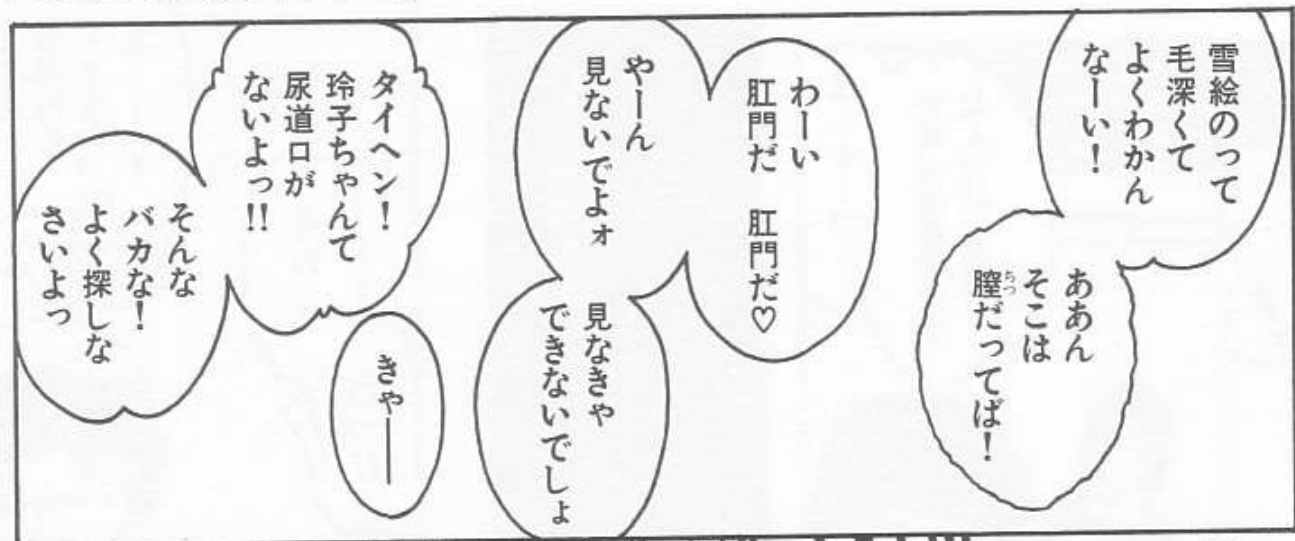 雪絵のって
毛深くて
よくわかん
なーい！
ああん
そこは
膣だってば！
ちつ
わーい
肛門だ　肛門だ♡
やーん
見ないでよォ
見なきゃ
できないでしょ
タイヘン！
玲子ちゃんて
尿道口が
ないよっ!!
そんな
バカな！
よく探しな
さいよっ
きゃ――